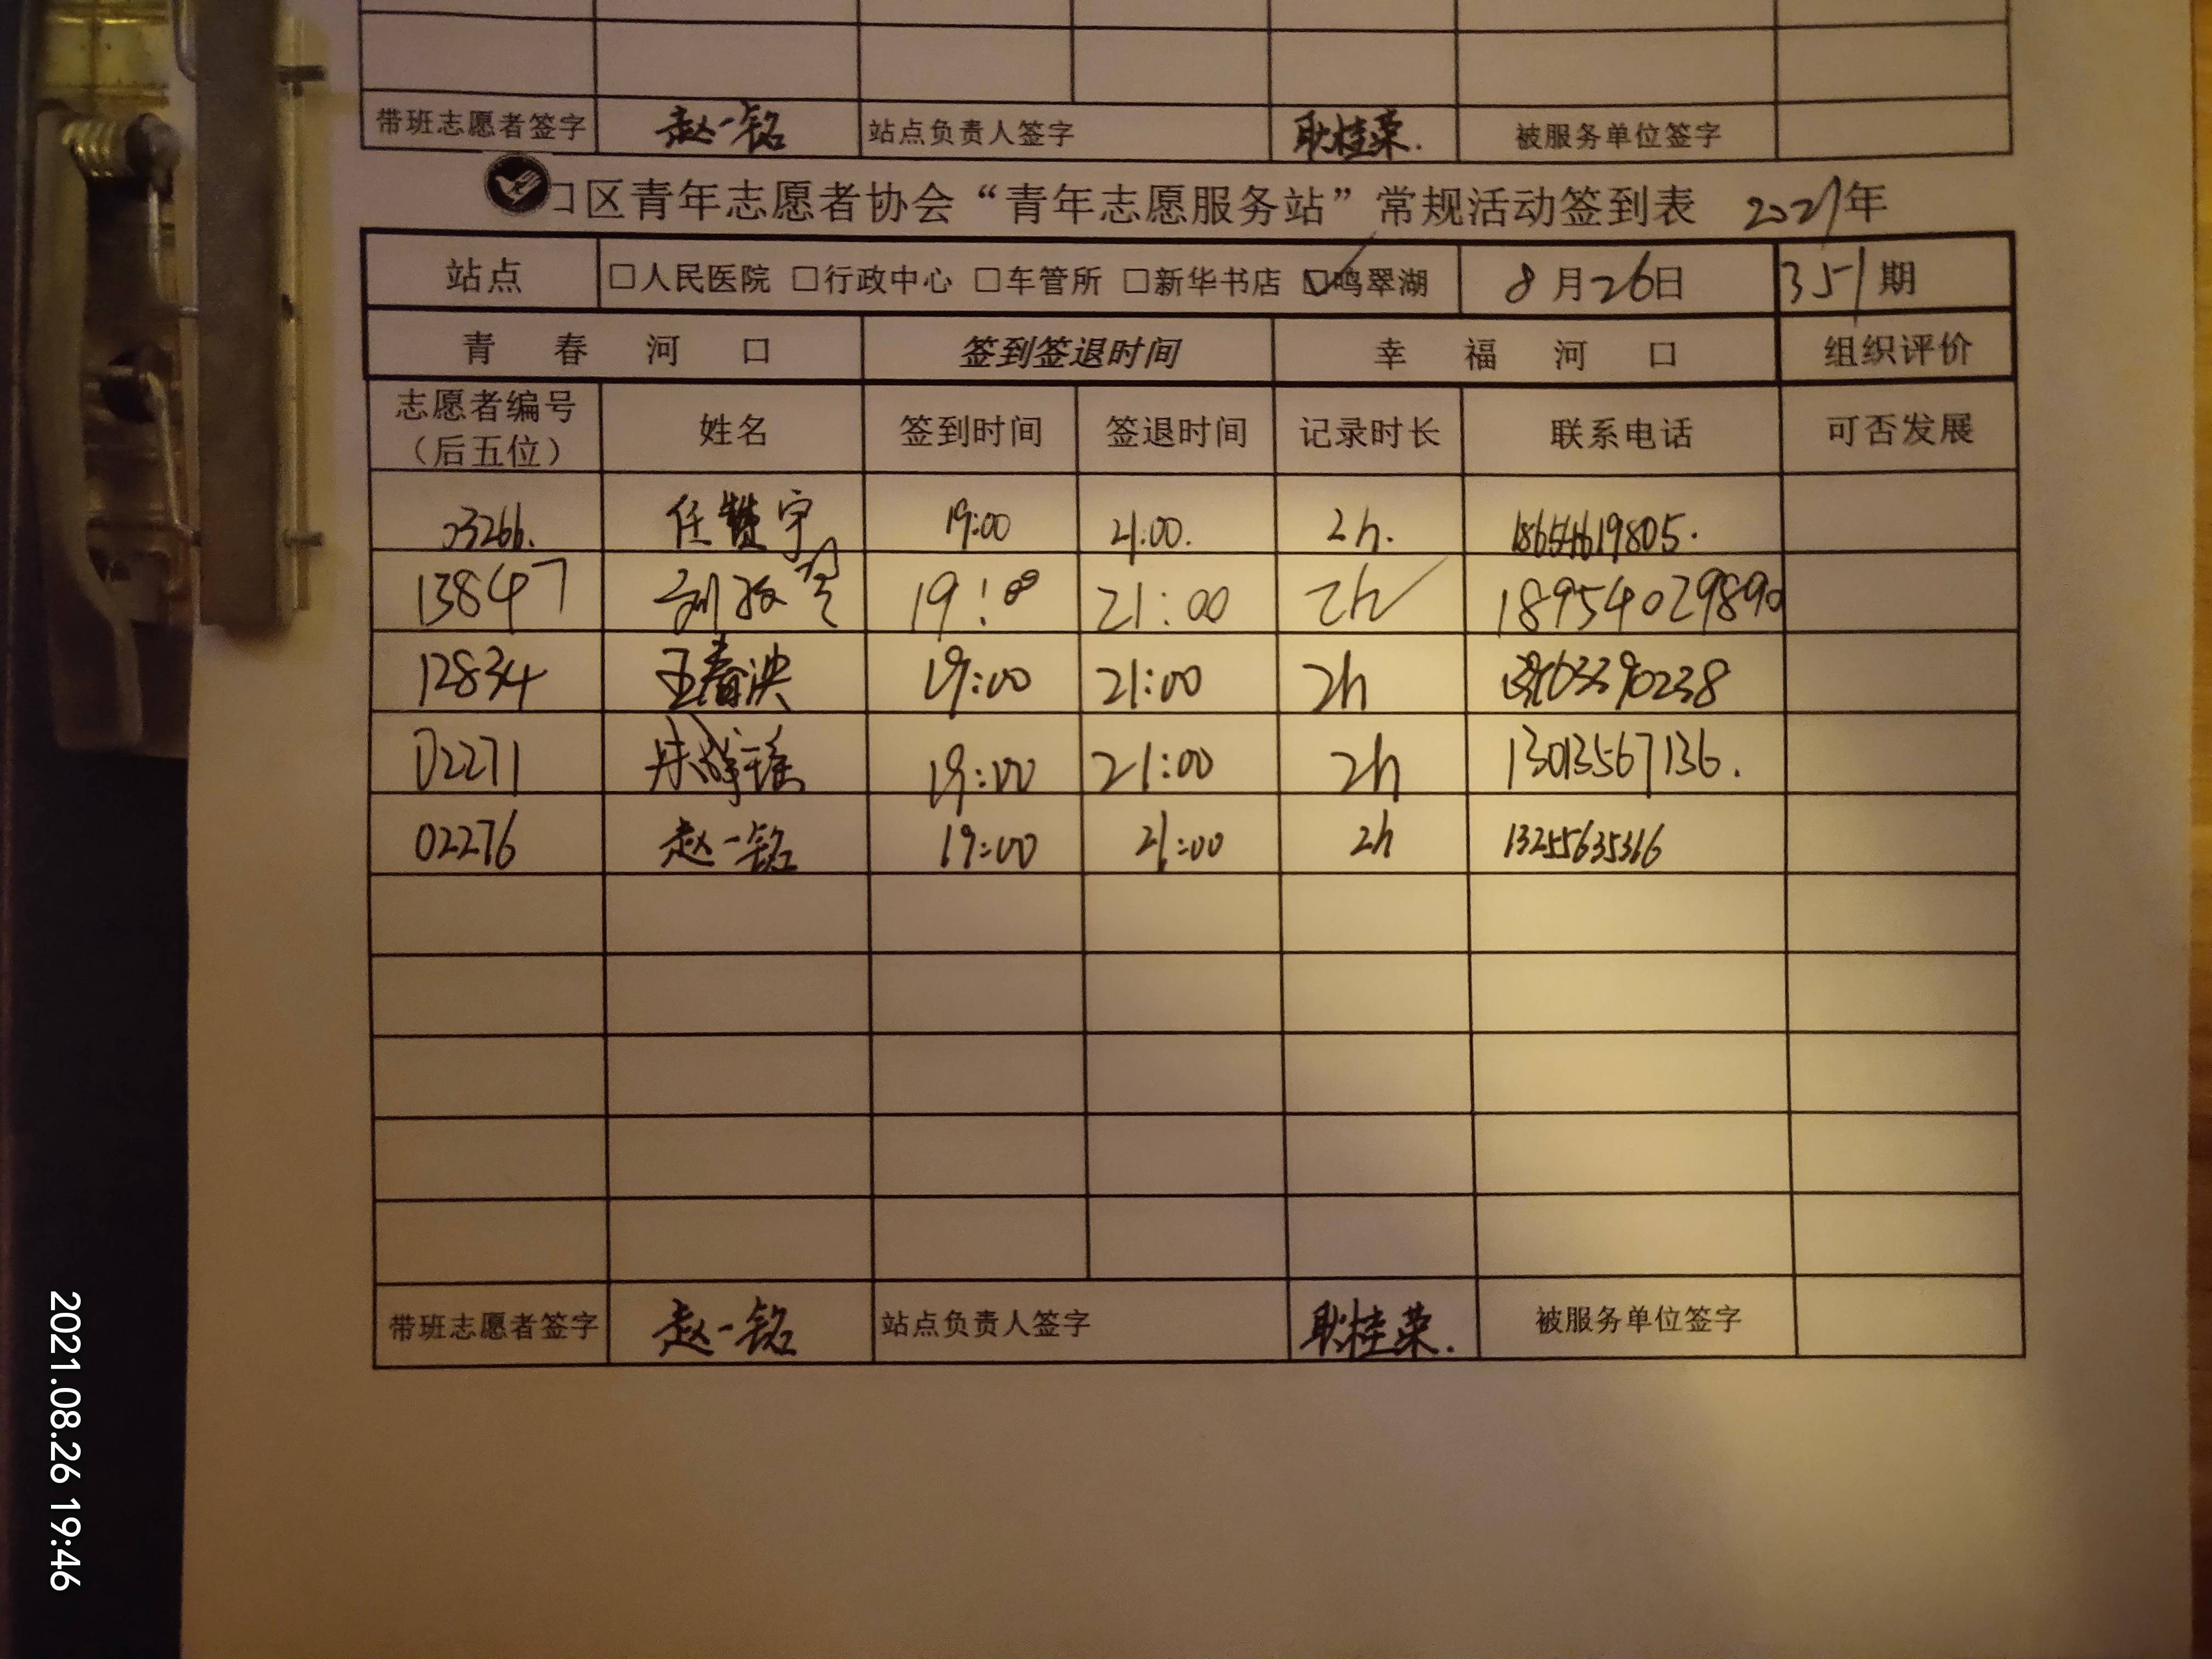 带班志愿者签字 赵一铭 站点负责人签字 耿桂荣. 被服务单位签字
口区青年志愿者协会“青年志愿服务站”常规活动签到表 2021年
站点 □人民医院 □行政中心 □车管所 □新华书店 ☑鸣翠湖 8月26日 351期
青春河口 签到签退时间 幸福河口 组织评价
志愿者编号 姓名 签到时间 签退时间 记录时长 联系电话 可否发展
（后五位）
03266. 任赞宇 19:00 21:00. 2h. 18654619805.
13847 19:00 21:00 2h 18954029890
12834 王春泱 19:00 21:00 2h
02271 19:00 21:00 2h 13013567136.
02276 赵一铭 19:00 21:00 2h 13255635316
带班志愿者签字 赵一铭 站点负责人签字 耿桂荣. 被服务单位签字
2021.08.26 19:46